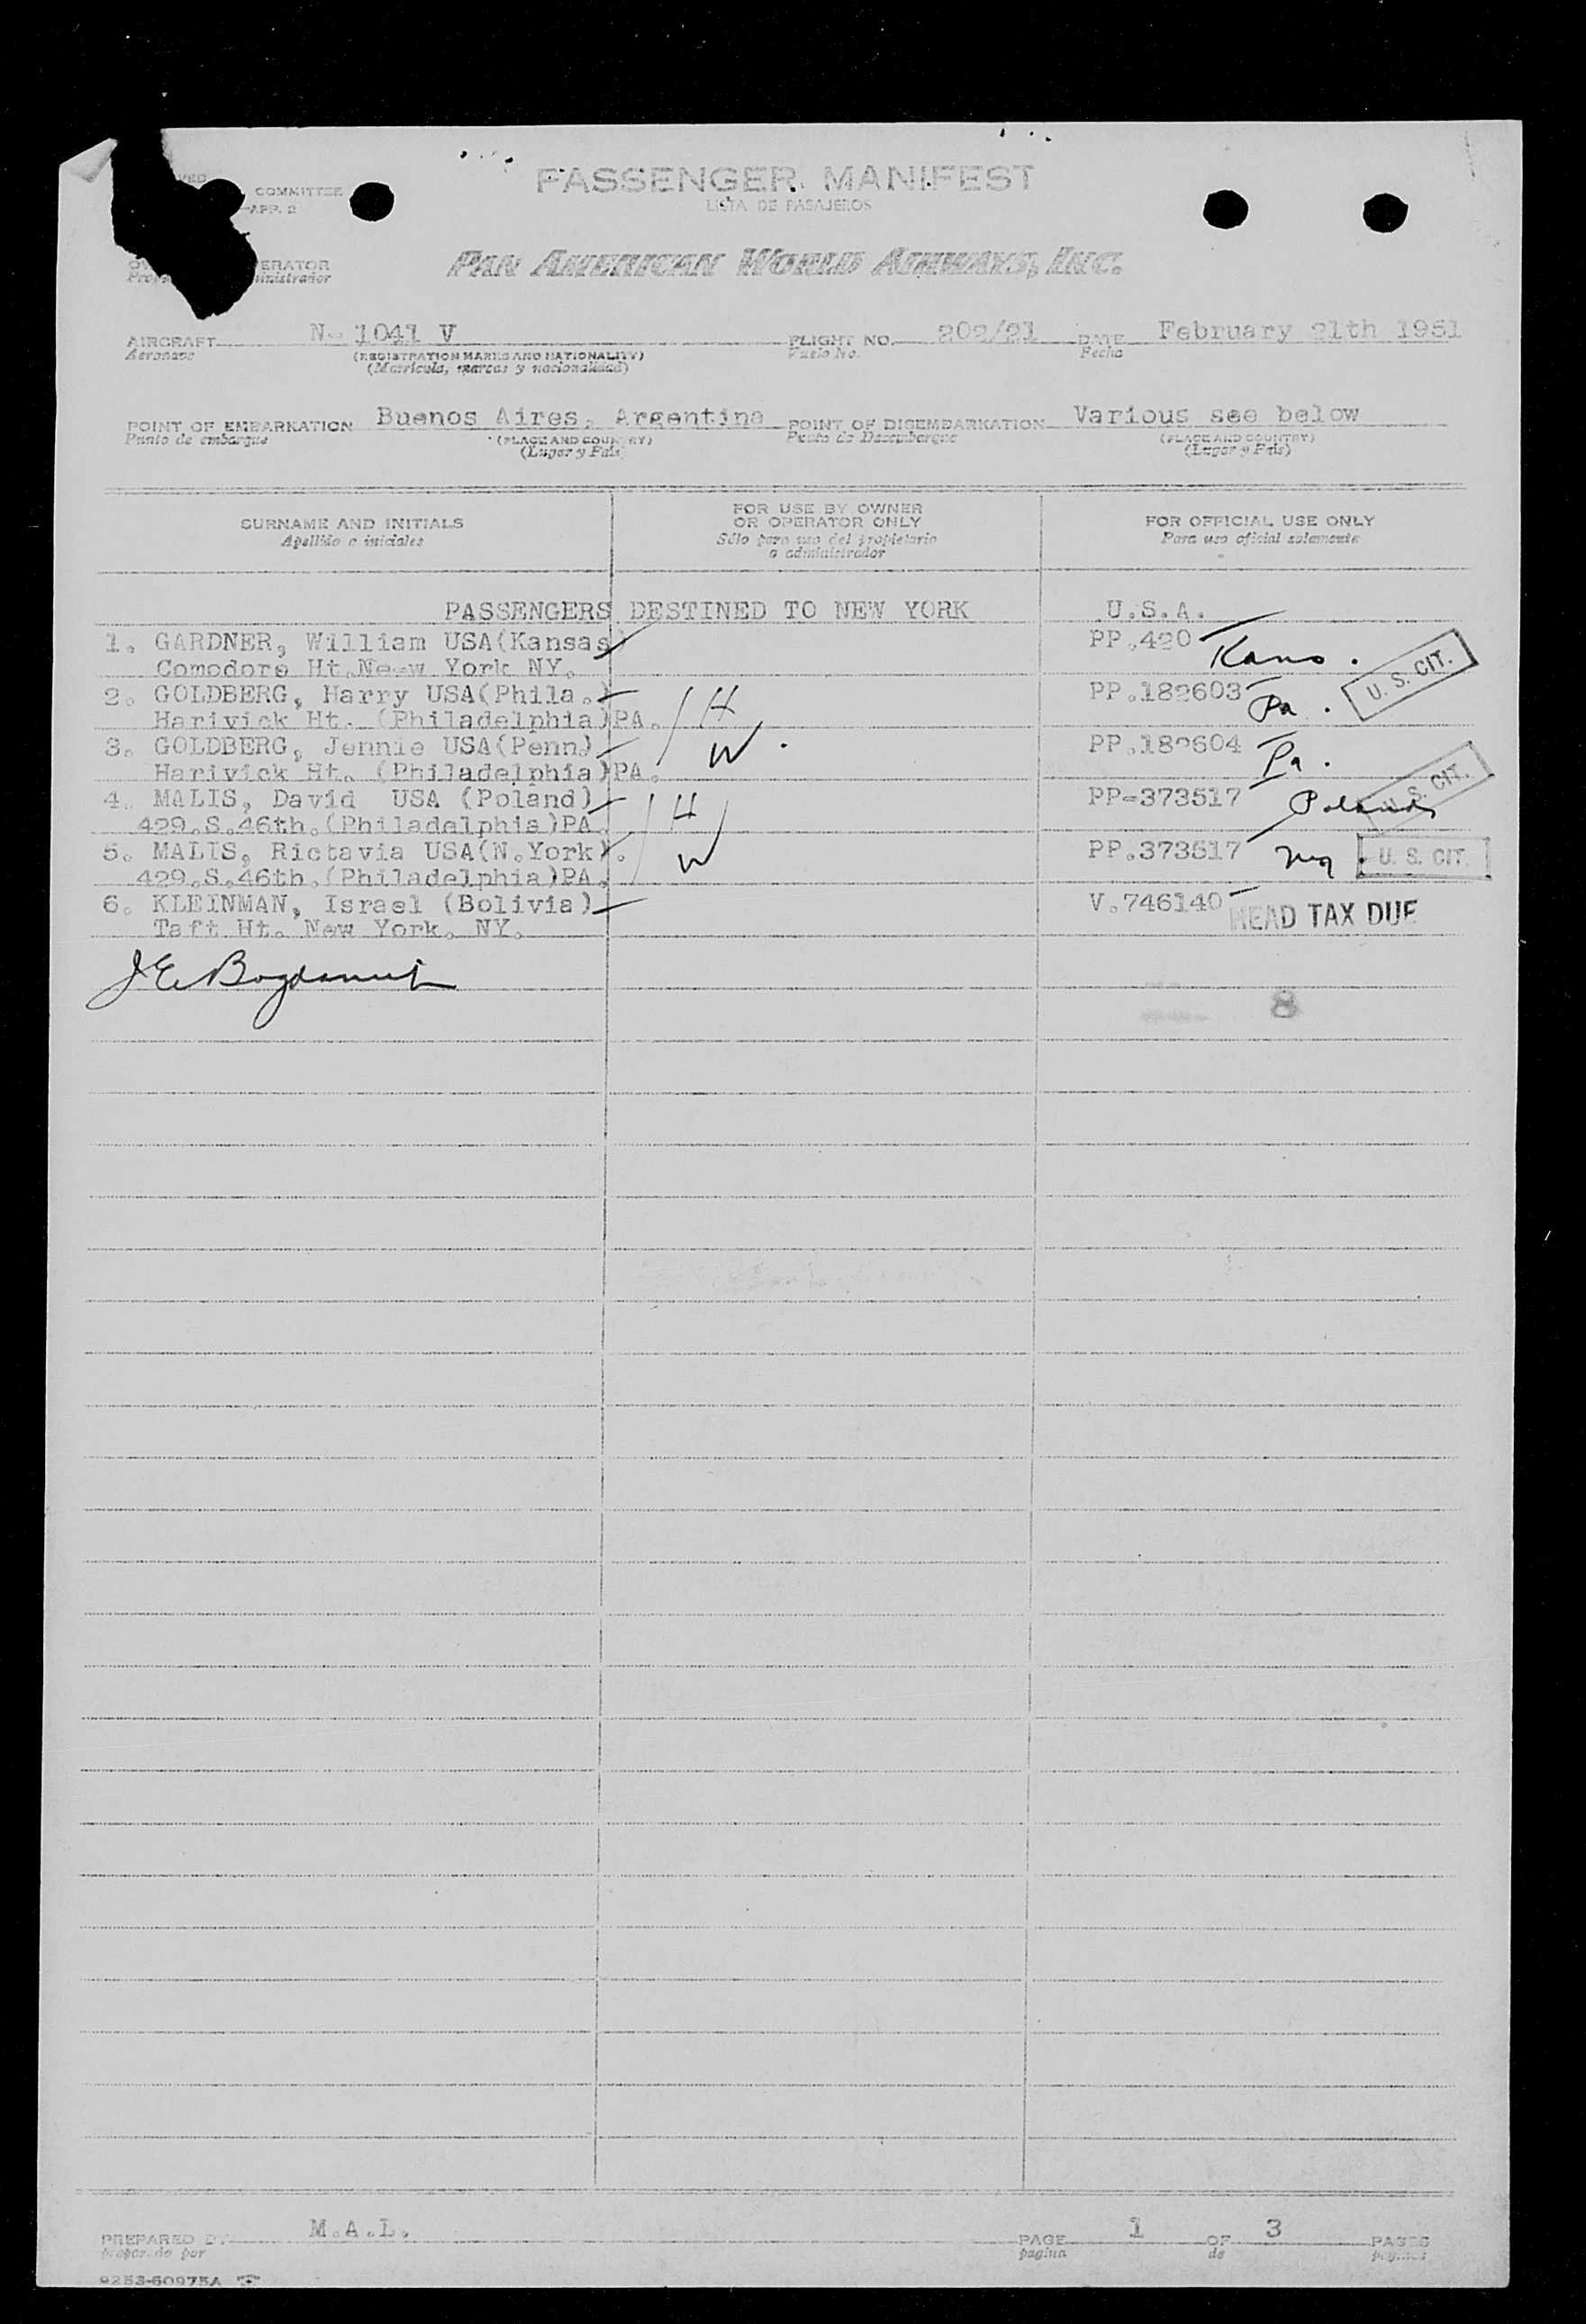 COMMITTEE
APP. 2
PASSENGER MANIFEST
LISTA DE PASAJEROS
ERATOR
PAN AMERICAN WORLD AIRWAYS, INC.
AIRCRAFT N- 1041 V FLIGHT NO. 202/21 DATE February 21th 1951
Aeronave (REGISTRATION MARKS AND NATIONALITY) Vuelo No. Fecha
(Matrícula, marcas y nacionalidad)
POINT OF EMBARKATION Buenos Aires, Argentina POINT OF DISEMBARKATION Various see below
Punto de embarque (PLACE AND COUNTRY) Punto de Desembarque (PLACE AND COUNTRY)
(Lugar y País) (Lugar y País)
SURNAME AND INITIALS FOR USE BY OWNER OR OPERATOR ONLY FOR OFFICIAL USE ONLY
Apellido e iniciales Sólo para uso del propietario o administrador Para uso oficial solamente
PASSENGERS DESTINED TO NEW YORK U.S.A.
1. GARDNER, William USA(Kansas) PP.420 Kans.
Comodore Ht.Ne-w York NY. U. S. CIT.
2. GOLDBERG, Harry USA(Phila.) H PP.182603 Pa.
Harivick Ht. (Philadelphia)PA.
3. GOLDBERG, Jennie USA(Penn) W. PP.182604 Pa.
Harivick Ht. (Philadelphia)PA. U. S. CIT.
4. MALIS, David USA (Poland) H PP-373517 Poland
429.S.46th.(Philadelphia)PA.
5. MALIS, Rictavia USA(N.York). W PP.373517 U. S. CIT.
429.S.46th.(Philadelphia)PA.
6. KLEINMAN, Israel (Bolivia) V.746140 HEAD TAX DUE
Taft Ht. New York. NY.
8
PREPARED BY M.A.L. PAGE 1 OF 3 PAGES
preparado por pagina de paginas
9253-60975A